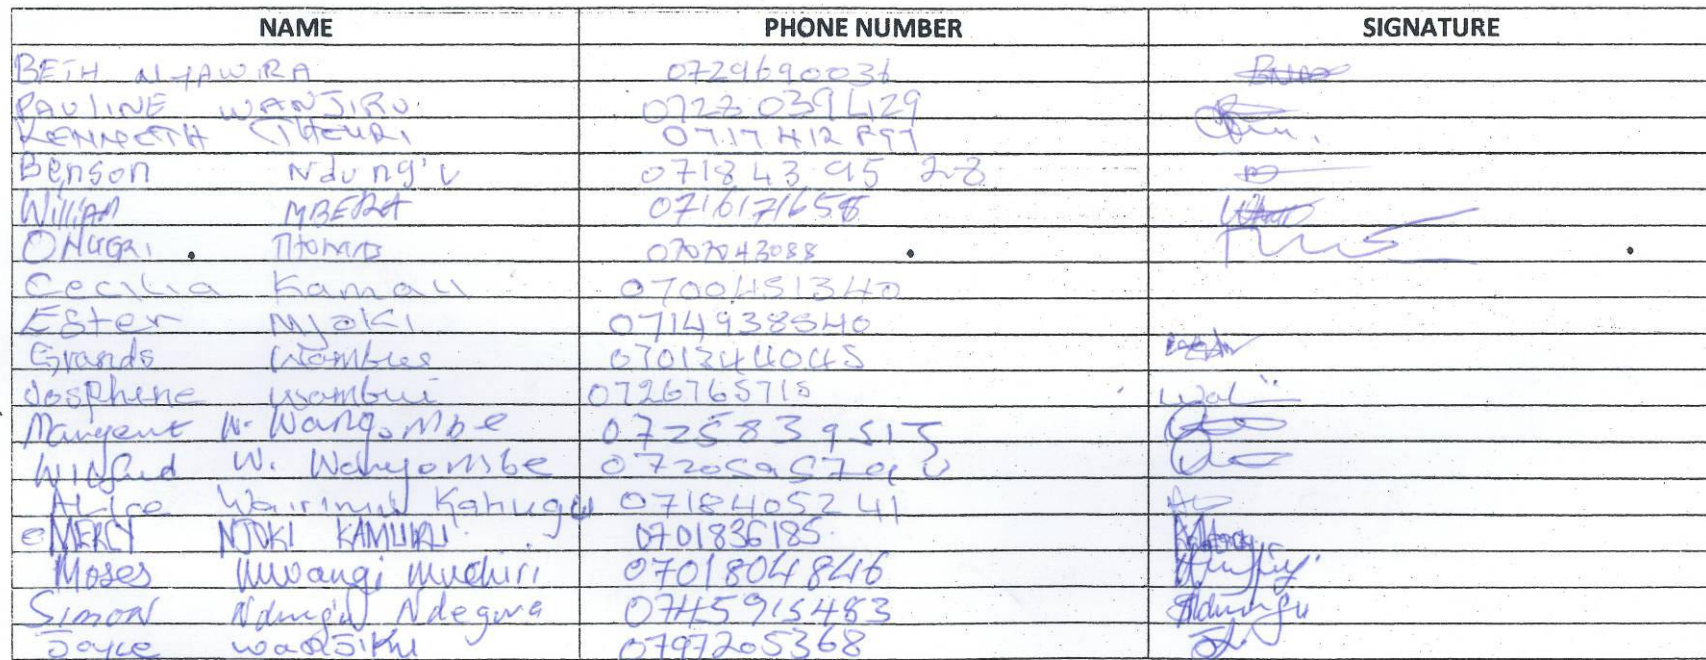 NAME PHONE NUMBER SIGNATURE
BETH 0729690036
PAULINE WANJIRU 0722039429
KENNETH THEURI 0717412897
Benson Ndung'u 071843 95 28
William 0716171658
Thomas 0707043088
Cecilia Kamau 0700451340
Ester Njoki 0714938540
Grands 0701344045
Josphene Wambui 0726765715
W. Wangombe 0725839515
W.
Alice Wairimu Kahugu 0718405241
MERCY NJOKI 0701836185
Moses Mwangi Muchiri 0701804846
Simon Ndungu Ndegwa 0745915483 Ndungu
Joyce Wanjiku 0797205368